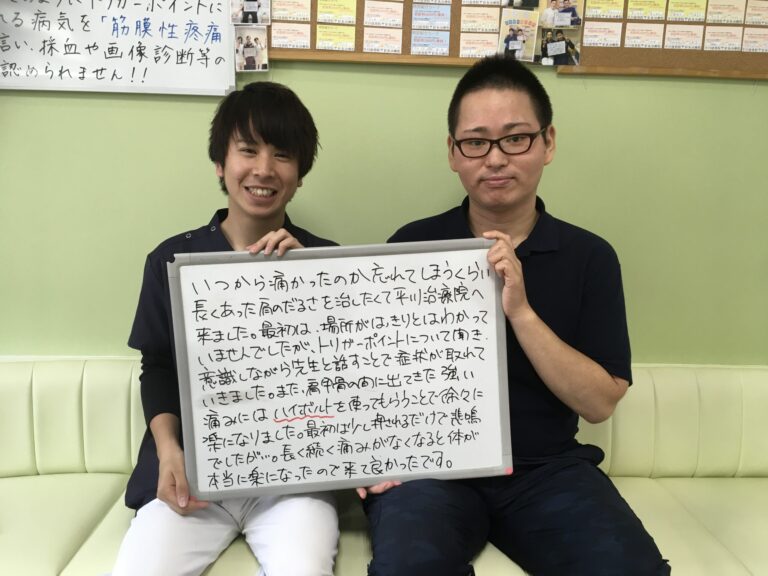 トリガーポイントに
れる病気を「筋膜性疼痛
言い、採血や画像診断等の
認められません!!
いつから痛かったのか忘れてしまうくらい
長くあった肩のだるさを治したくて平川治療院へ
来ました。最初は、場所がはっきりとはわかって
いませんでしたが、トリガーポイントについて聞き、
意識しながら先生と話すことで症状が取れて
いきました。また、肩甲骨の間に出てきた強い
痛みにはハイボルトを使ってもらうことで徐々に
楽になりました。最初は少し押されるだけで悲鳴
でしたが…。長く続く痛みがなくなると体が
本当に楽になったので来て良かったです。